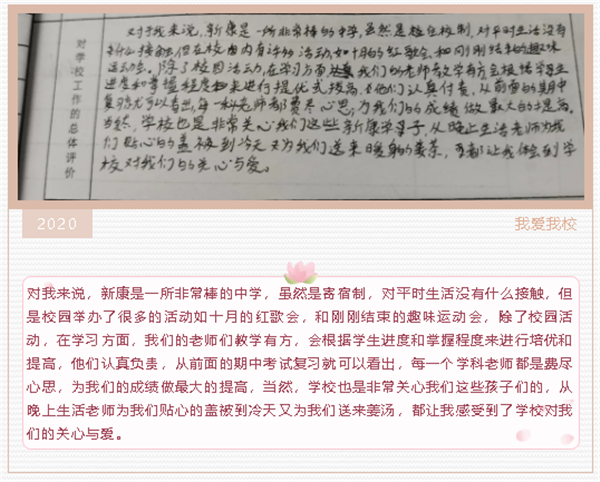 对学校工作的总体评价
对于我来说，新康是一所非常棒的中学，虽然是住校制，对平时生活没有
什么接触，但在校园内有许多活动，如十月的红歌会，和刚刚结束的趣味
运动会。除了校园活动，在学习方面，我们的老师教学有方会根据学生
进度和掌握程度来进行提优式拔高，他们认真付责，从前面的期中
复习就可以看出，每一科老师都费尽心思，为我们的成绩做最大的提高。
当然，学校也是非常关心我们这些新康学子，从晚上生活老师为我
们贴心的盖被到冷天又为我们送来暖身的姜茶，都让我体会到学
校对我们的关心与爱。
2020
我爱我校
对我来说，新康是一所非常棒的中学，虽然是寄宿制，对平时生活没有什么接触，但
是校园举办了很多的活动如十月的红歌会，和刚刚结束的趣味运动会，除了校园活
动，在学习方面，我们的老师们教学有方，会根据学生进度和掌握程度来进行培优和
提高，他们认真负责，从前面的期中考试复习就可以看出，每一个学科老师都是费尽
心思，为我们的成绩做最大的提高，当然，学校也是非常关心我们这些孩子们的，从
晚上生活老师为我们贴心的盖被到冷天又为我们送来姜汤，都让我感受到了学校对我
们的关心与爱。